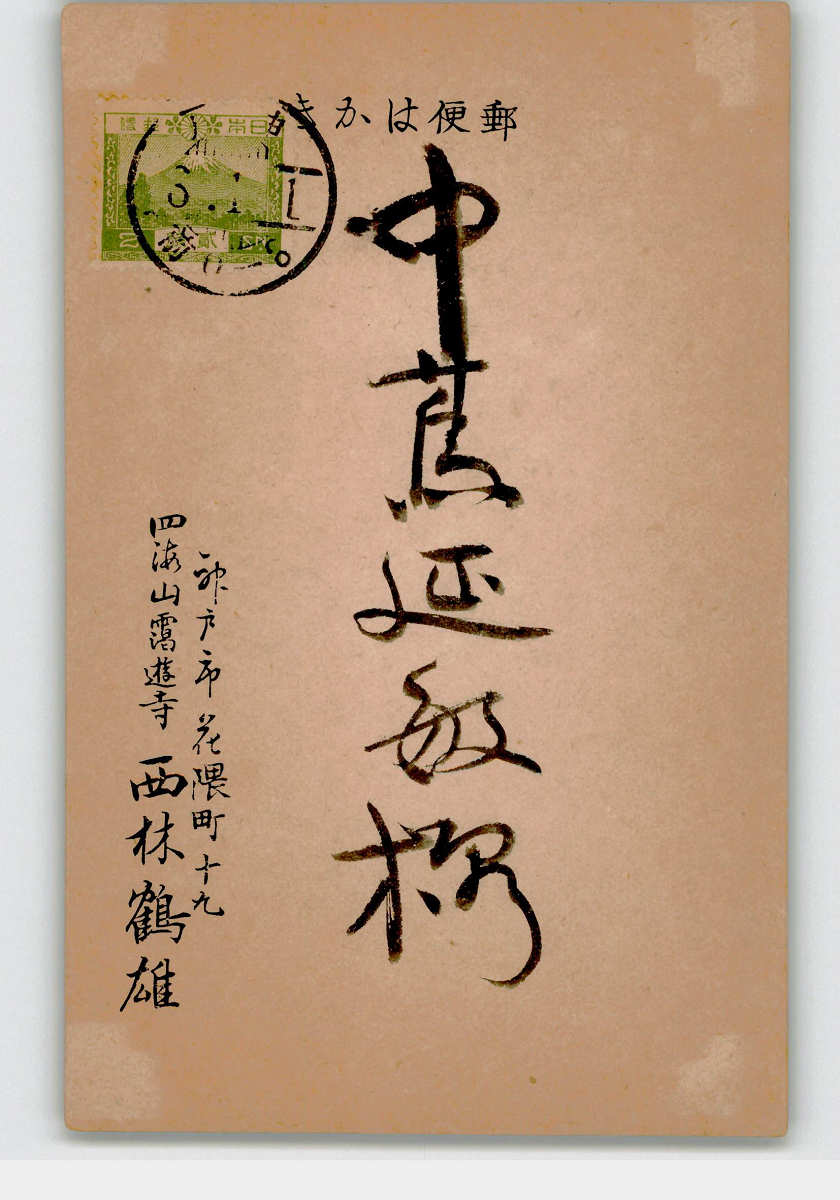 郵便はかき
日本郵便
中蔦延敏様
神戸市花隈町十九
四海山靄遊寺 西林鶴雄